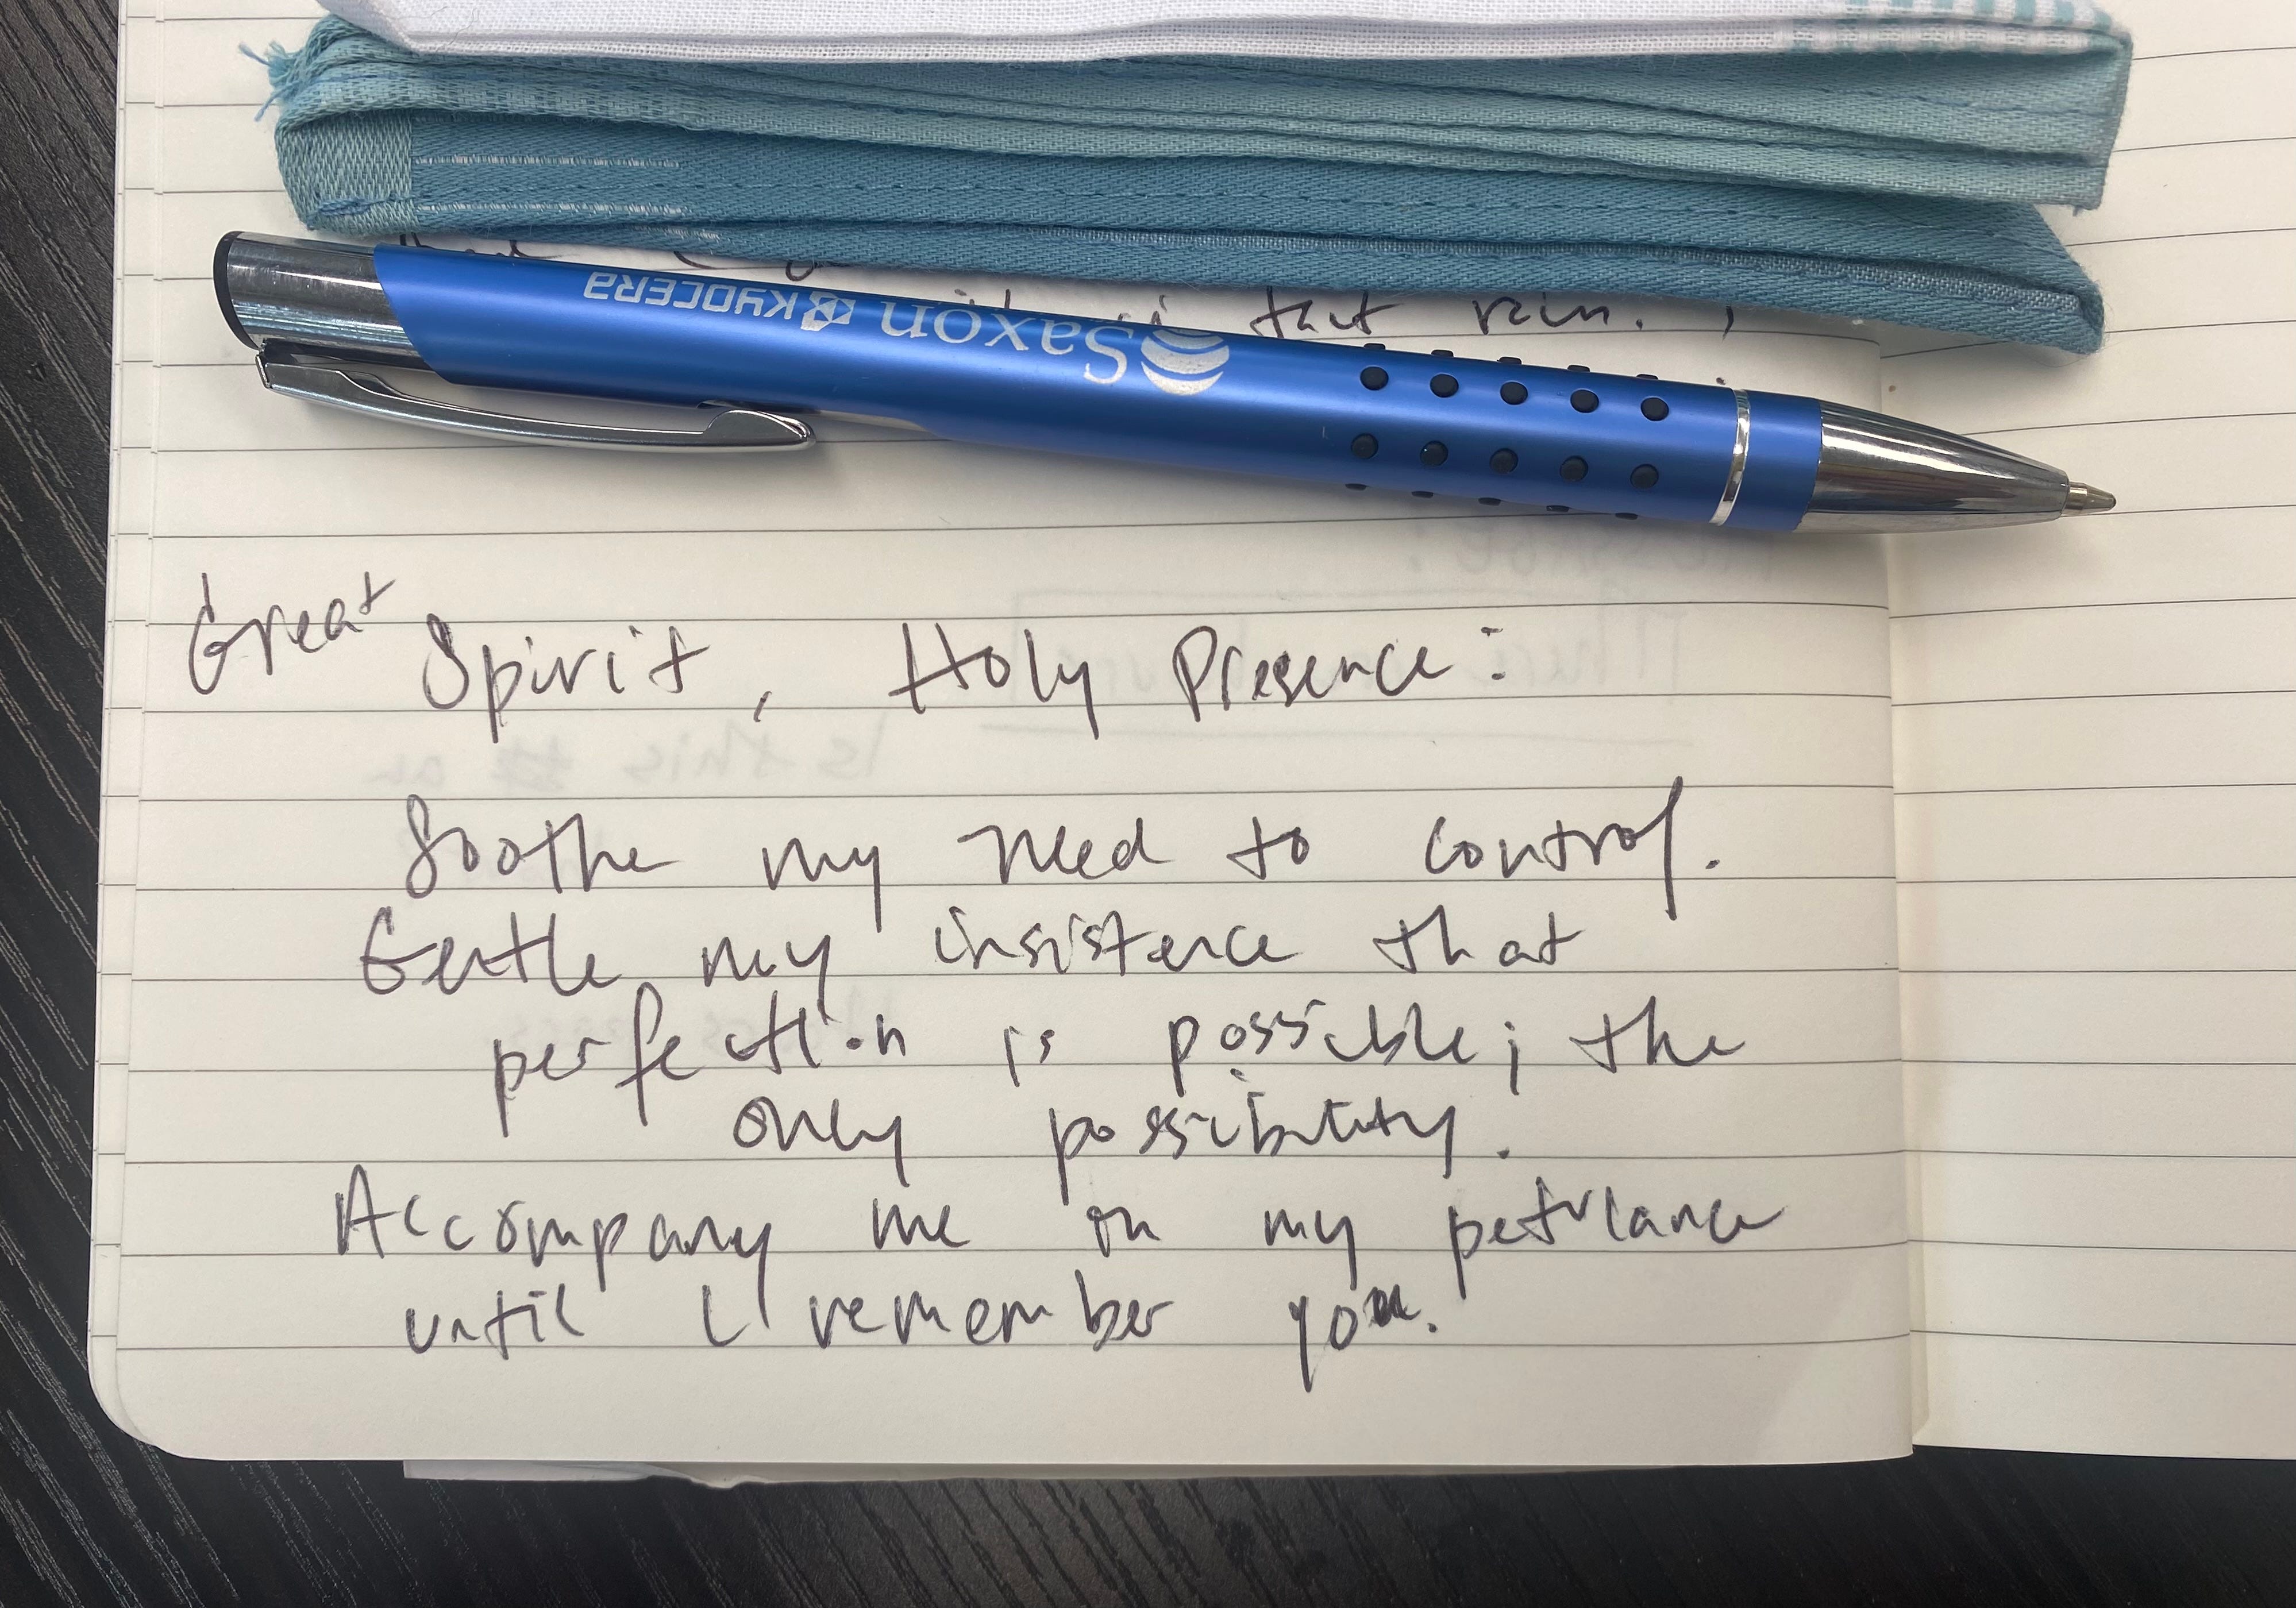 that rain.
Saxon KYOCERA
Great Spirit, Holy Presence:
Is this an
Soothe my need to control.
Gentle my insistence that
perfection is possible; the
only possibility.
Accompany me in my petulance
until I remember you.